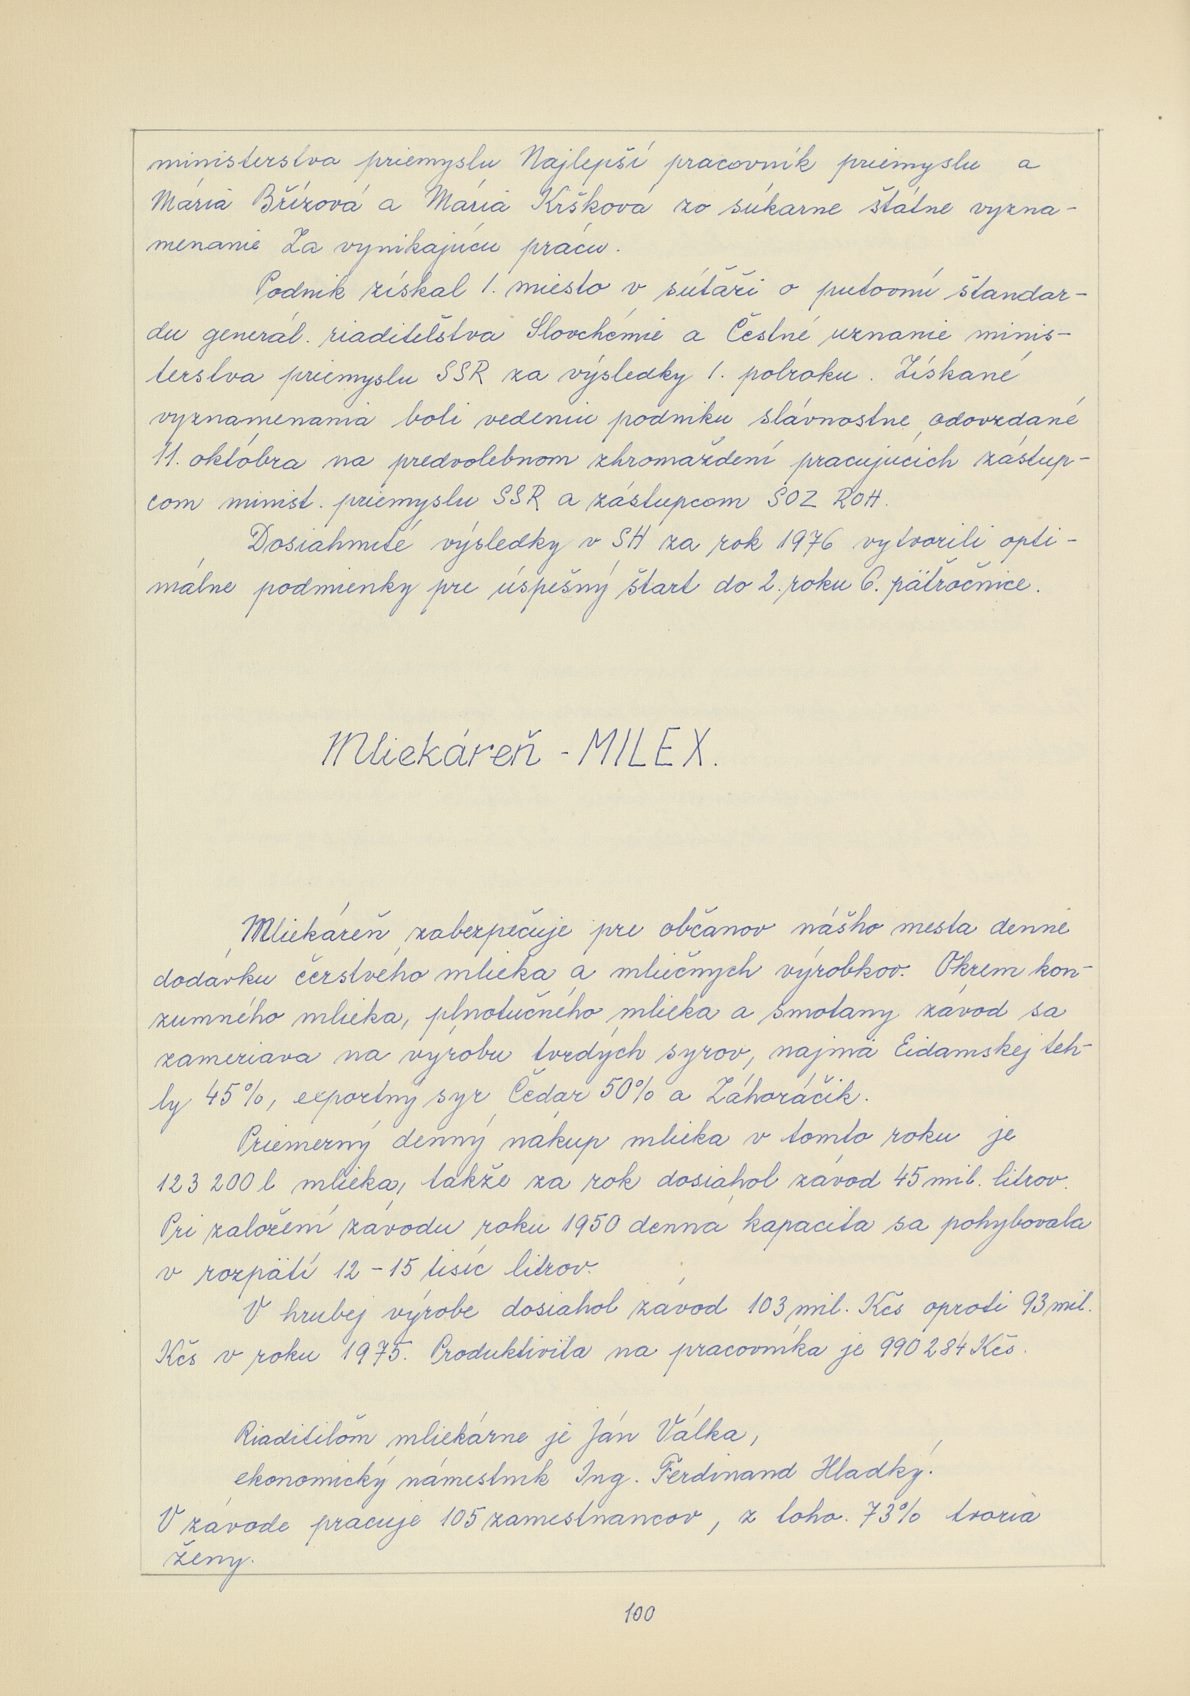 ministerstva priemyslu Najlepší pracovník priemyslu a
Mária Břízová a Mária Kršková zo súkarne štátne vyzna-
menanie Za vynikajúcu prácu.
Podnik získal 1. miesto v súťaži o putovnú štandar-
du generál. riaditeľstva Slovchémie a Čestné uznanie minis-
terstva priemyslu SSR za výsledky 1. polroku. Získané
vyznamenania boli vedeniu podniku slávnostne odovzdané
11. októbra na predvolebnom zhromaždení pracujúcich zástup-
com minist. priemyslu SSR a zástupcom SOZ ROH.
Dosiahnuté výsledky v SH za rok 1976 vytvorili opti-
málne podmienky pre úspešný štart do 2. roku 6. päťročnice.
Mliekáreň - MILEX.
Mliekáreň zabezpečuje pre občanov nášho mesta denne
dodávku čerstvého mlieka a mliečnych výrobkov. Okrem kon-
zumného mlieka, plnotučného mlieka a smotany závod sa
zameriava na výrobu tvrdých syrov, najmä Eidamskej teh-
ly 45%, exportný syr Čedar 50% a Záhoráčik.
Priemerný denný nákup mlieka v tomto roku je
123 200 l mlieka, takže za rok dosiahol závod 45 mil. litrov.
Pri založení závodu roku 1950 denná kapacita sa pohybovala
v rozpätí 12 - 15 tisíc litrov.
V hrubej výrobe dosiahol závod 103 mil. Kčs oproti 93 mil.
Kčs v roku 1975. Produktivita na pracovníka je 990 284 Kčs.
Riaditeľom mliekárne je Ján Válka,
ekonomický námestník Ing. Ferdinand Hladký.
V závode pracuje 105 zamestnancov, z toho. 73% tvoria
ženy.
100